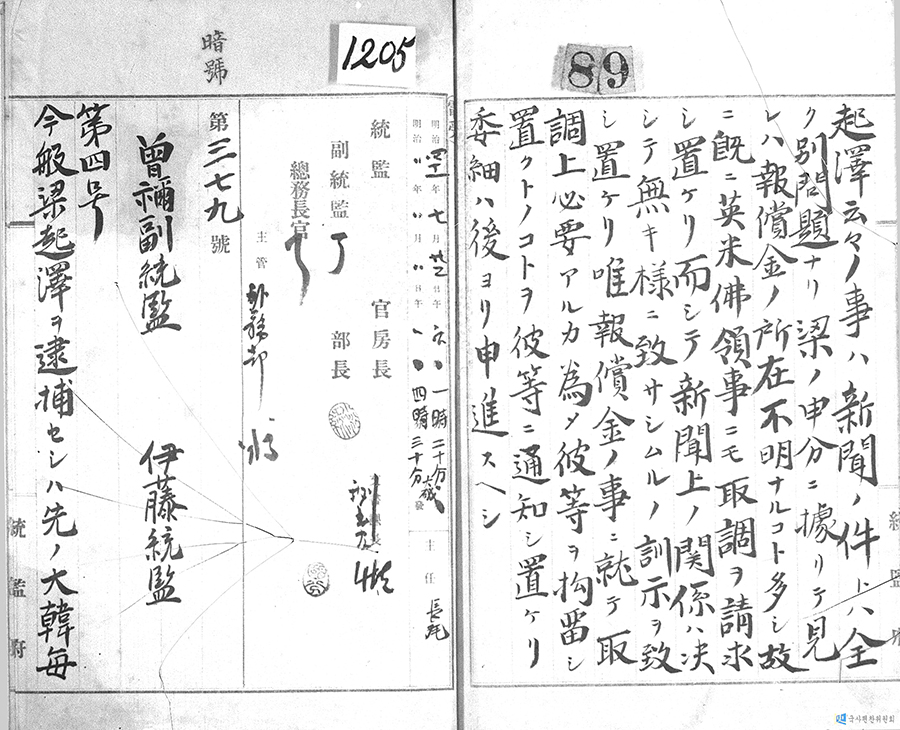 89
起澤云々ノ事ハ新聞ノ件トハ全
ク別問題ナリ梁ノ申分ニ據リテ見
レハ報償金ノ所在不明ナルコト多シ故
ニ既ニ英米佛領事ニモ取調ヲ請求
シ置ケリ而シテ新聞上ノ関係ハ決
シテ無キ様ニ致サシムルノ訓示ヲ致
シ置ケリ唯報償金ノ事ニ就テ取
調上必要アルカ為メ彼等ヲ拘留シ
置クトノコトヲ彼等ニ通知シ置ケリ
委細ハ後ヨリ申進スヘシ
統監府
1205
暗號
明治四十一年七月廿二日午
一時二十分
明治〃年〃月〃日午
四時三十分
主任
長
統監
官房長
副統監
部長
總務長官
主管
外務部
第三七九號
曾禰副統監
伊藤統監
第四号
今般梁起澤ヲ逮捕セシハ先ノ大韓毎
統監府
국사편찬위원회